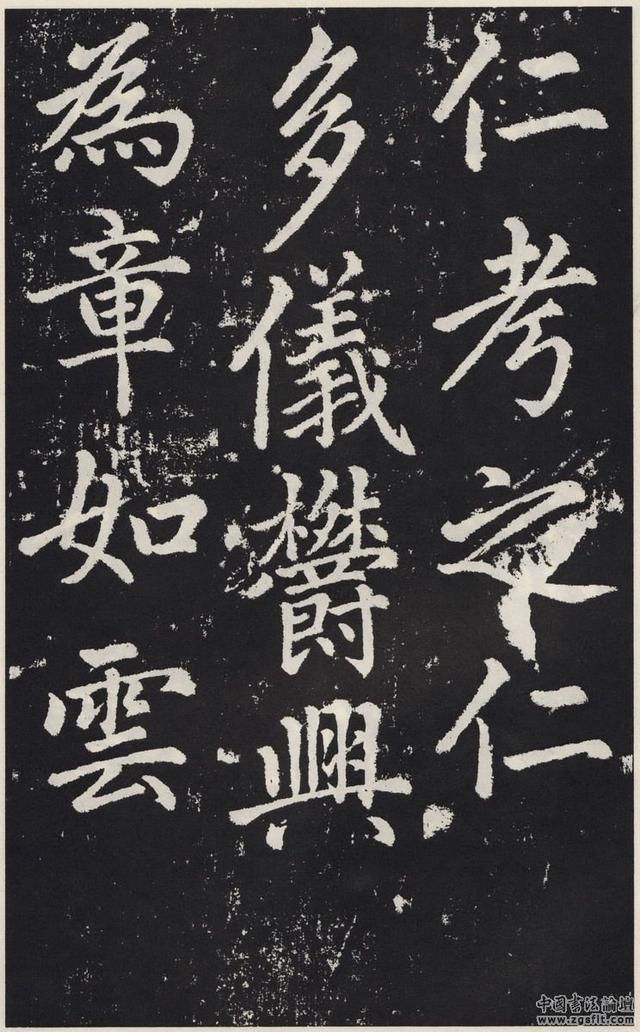 仁考之仁
多儀鬱興
為章如雲
中國書法論壇
www.zgsflt.com